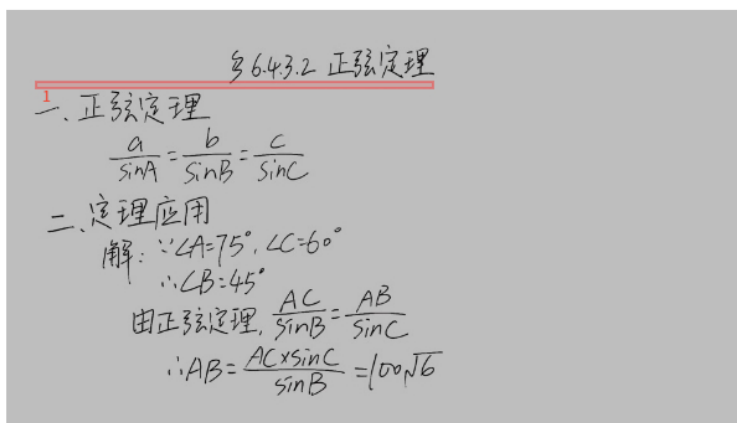 §6.4.3.2 正弦定理
1
一、正弦定理
a/sinA = b/sinB = c/sinC
二、定理应用
解：∵∠A=75°，∠C=60°
∴∠B=45°
由正弦定理，AC/sinB = AB/sinC
∴AB = AC×sinC/sinB = 100√6